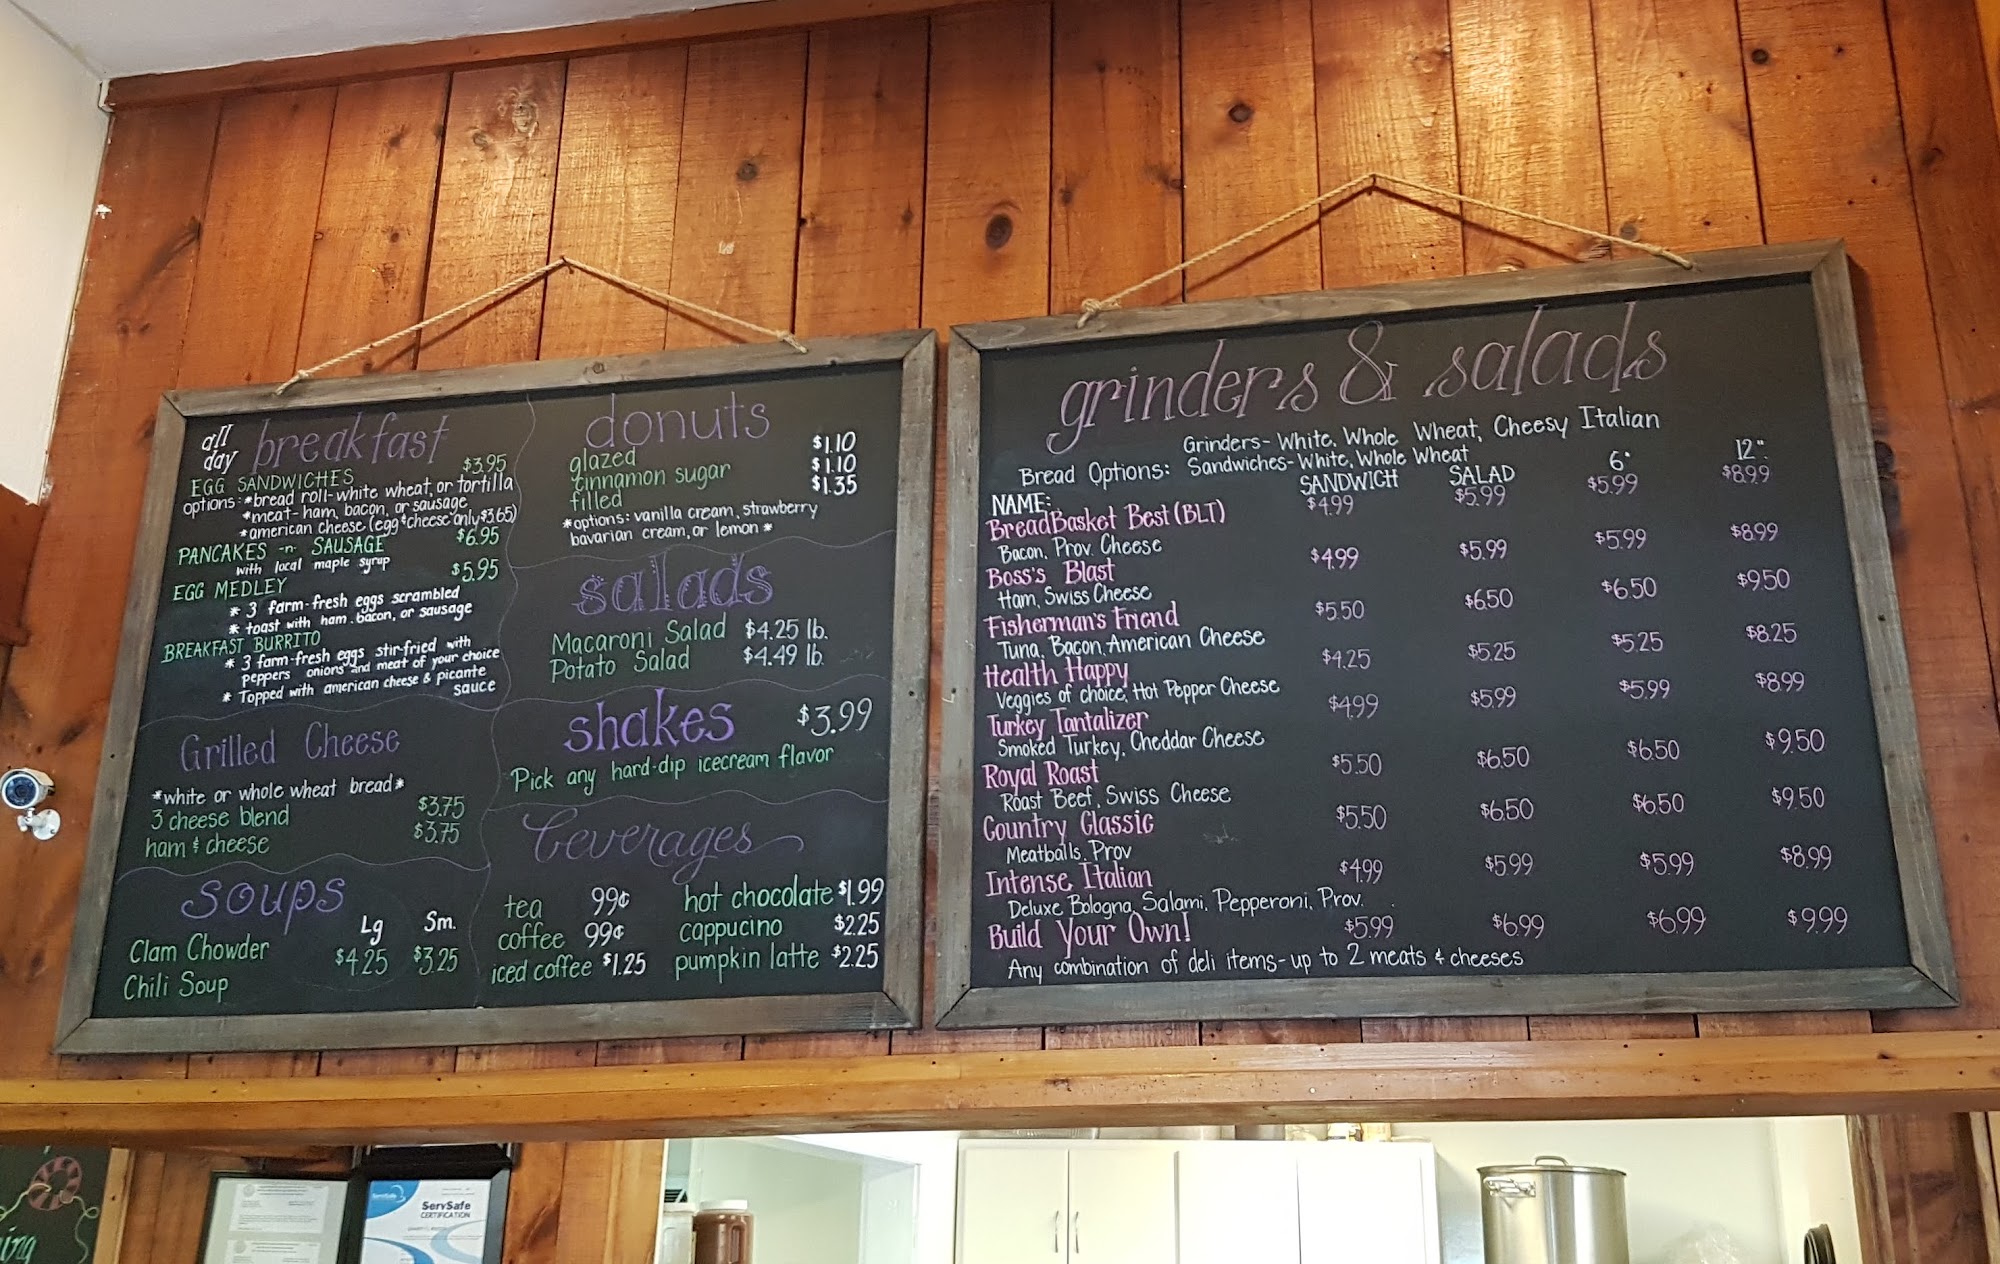 all day breakfast
EGG SANDWICHES $3.95
options: *bread roll-white wheat, or tortilla
*meat-ham, bacon, or sausage
*american cheese (egg & cheese only $3.65)
PANCAKES -n- SAUSAGE $6.95
with local maple syrup
EGG MEDLEY $5.95
* 3 farm-fresh eggs scrambled
* toast with ham, bacon, or sausage
BREAKFAST BURRITO
* 3 farm-fresh eggs stir-fried with
peppers onions and meat of your choice
* Topped with american cheese & picante
sauce
Grilled Cheese
*white or whole wheat bread*
3 cheese blend $3.75
ham & cheese $3.75
soups
Lg Sm.
Clam Chowder $4.25 $3.25
Chili Soup
donuts
glazed $1.10
cinnamon sugar $1.10
filled $1.35
*options: vanilla cream, strawberry
bavarian cream, or lemon *
salads
Macaroni Salad $4.25 lb.
Potato Salad $4.49 lb.
shakes $3.99
Pick any hard-dip icecream flavor
beverages
tea 99¢ hot chocolate $1.99
coffee 99¢ cappucino $2.25
iced coffee $1.25 pumpkin latte $2.25
grinders & salads
Grinders- White, Whole Wheat, Cheesy Italian
Bread Options: Sandwiches- White, Whole Wheat
NAME: SANDWICH SALAD 6" 12"
BreadBasket Best (BLT) $4.99 $5.99 $5.99 $8.99
Bacon, Prov. Cheese
Boss's Blast $4.99 $5.99 $5.99 $8.99
Ham, Swiss Cheese
Fisherman's Friend $5.50 $6.50 $6.50 $9.50
Tuna, Bacon, American Cheese
Health Happy $4.25 $5.25 $5.25 $8.25
Veggies of choice, Hot Pepper Cheese
Turkey Tantalizer $4.99 $5.99 $5.99 $8.99
Smoked Turkey, Cheddar Cheese
Royal Roast $5.50 $6.50 $6.50 $9.50
Roast Beef, Swiss Cheese
Country Classic $5.50 $6.50 $6.50 $9.50
Meatballs, Prov
Intense Italian $4.99 $5.99 $5.99 $8.99
Deluxe Bologna, Salami, Pepperoni, Prov.
Build Your Own! $5.99 $6.99 $6.99 $9.99
Any combination of deli items-up to 2 meats & cheeses
ing
ServSafe
ServSafe
CERTIFICATION